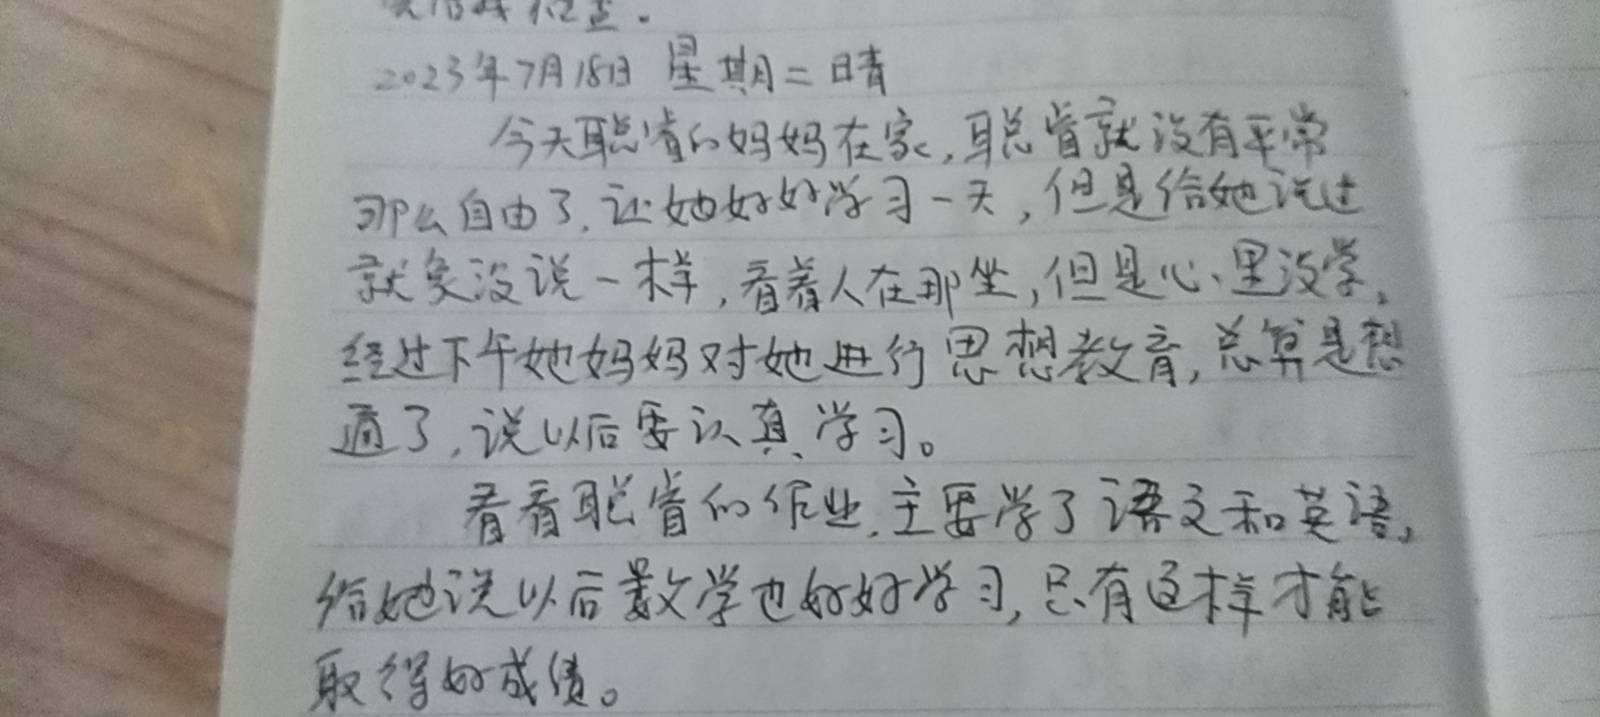 2023年7月18日 星期二 晴
今天聪睿的妈妈在家,聪睿就没有平常
那么自由了,让她好好学习一天,但是给她说过
就象没说一样,看着人在那坐,但是心里没学,
经过下午她妈妈对她进行思想教育,总算是想
通了,说以后要认真学习。
看看聪睿的作业,主要学了语文和英语,
给她说以后数学也好好学习,只有这样才能
取得好成绩。